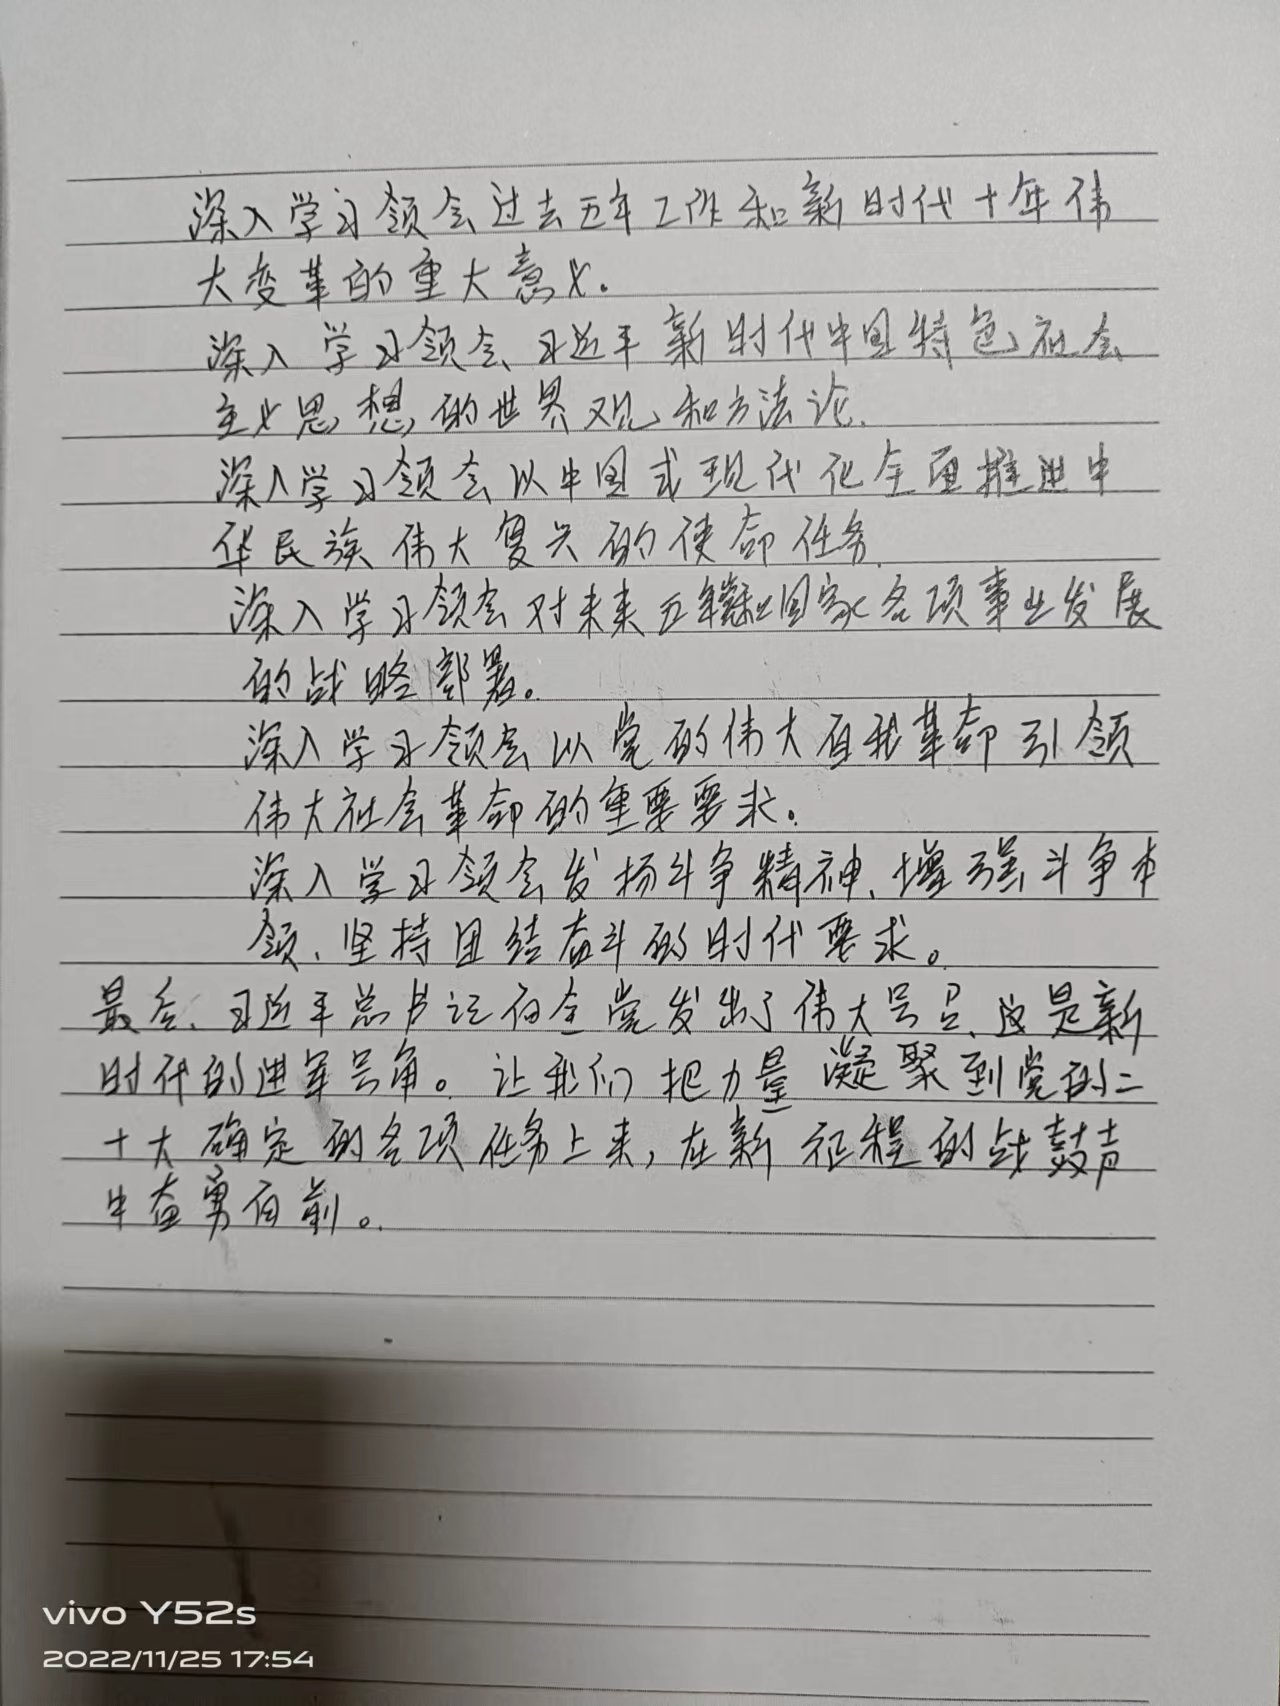 深入学习领会过去五年工作和新时代十年伟
大变革的重大意义。
深入学习领会习近平新时代中国特色社会
主义思想的世界观和方法论.
深入学习领会以中国式现代化全面推进中
华民族伟大复兴的使命任务.
深入学习领会对未来五年国家各项事业发展
的战略部署。
深入学习领会以党的伟大自我革命引领
伟大社会革命的重要要求。
深入学习领会发扬斗争精神、增强斗争本
领、坚持团结奋斗的时代要求。
最后、习近平总书记向全党发出了伟大号召、这是新
时代的进军号角。让我们把力量凝聚到党的二
十大确定的各项任务上来,在新征程的战鼓声
中奋勇向前。
vivo Y52s
2022/11/25 17:54